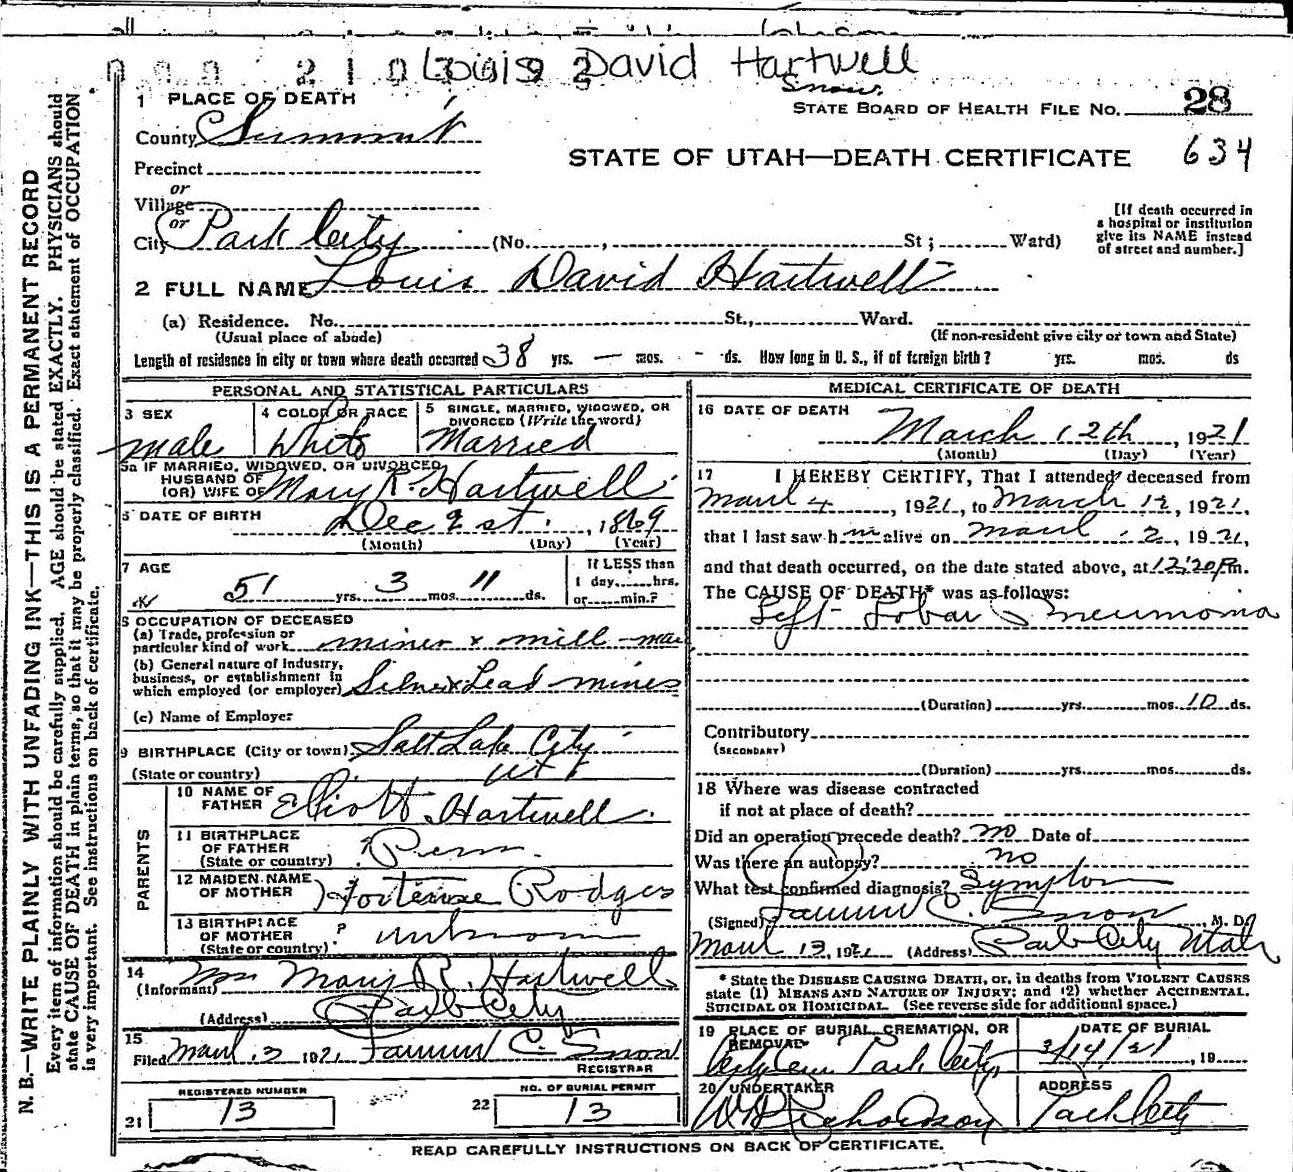 Louis David Hartwell
Snow.
1 PLACE OF DEATH
STATE BOARD OF HEALTH FILE NO. 28
County Summit
STATE OF UTAH—DEATH CERTIFICATE 634
Precinct
or
Village
or
City Park City (No. , St; Ward)
[If death occurred in
a hospital or institution
give its NAME instead
of street and number.]
2 FULL NAME Louis David Hartwell
(a) Residence. No. St., Ward.
(Usual place of abode) (If non-resident give city or town and State)
Length of residence in city or town where death occurred 38 yrs. — mos. - ds. How long in U. S., if of foreign birth? yrs. mos. ds
PERSONAL AND STATISTICAL PARTICULARS
3 SEX
male
4 COLOR OR RACE
White
5 SINGLE, MARRIED, WIDOWED, OR
DIVORCED (Write the word)
Married
5a IF MARRIED, WIDOWED, OR DIVORCED
HUSBAND OF
(OR) WIFE OF Mary R. Hartwell
6 DATE OF BIRTH Dec 1869
(Month) (Day) (Year)
7 AGE
51 yrs. 3 mos. 11 ds.
If LESS than
1 day, hrs.
or min.?
8 OCCUPATION OF DECEASED
(a) Trade, profession or
particular kind of work miner & mill man
(b) General nature of Industry,
business, or establishment in
which employed (or employer) Silver & Lead mines
(c) Name of Employer
9 BIRTHPLACE (City or town) Salt Lake City
(State or country) Ut
PARENTS
10 NAME OF
FATHER Eliott Hartwell
11 BIRTHPLACE
OF FATHER
(State or country) ? Penn.
12 MAIDEN NAME
OF MOTHER Hortense Rodges
13 BIRTHPLACE
OF MOTHER
(State or country) ? unknown
14
(Informant) Mrs Mary R. Hartwell
(Address) Park City
15
Filed 1921 C. Snow
REGISTRAR
REGISTERED NUMBER
21 13
NO. OF BURIAL PERMIT
22 13
MEDICAL CERTIFICATE OF DEATH
16 DATE OF DEATH
March 12th, 1921
(Month) (Day) (Year)
17 I HEREBY CERTIFY, That I attended deceased from
March 4, 1921, to March 12, 1921,
that I last saw him alive on March 12, 1921,
and that death occurred, on the date stated above, at 12:20 Pm.
The CAUSE OF DEATH* was as follows:
Left Lobar Pneumonia
(Duration) yrs. mos. 10 ds.
Contributory
(SECONDARY)
(Duration) yrs. mos. ds.
18 Where was disease contracted
if not at place of death?
Did an operation precede death? no Date of
Was there an autopsy? no
What test confirmed diagnosis? Symptom
(Signed) C. Snow, M. D.
March 13, 1921 (Address) Park City Utah
* State the DISEASE CAUSING DEATH, or, in deaths from VIOLENT CAUSES
state (1) MEANS AND NATURE OF INJURY; and (2) whether ACCIDENTAL,
SUICIDAL OR HOMICIDAL. (See reverse side for additional space.)
19 PLACE OF BURIAL, CREMATION, OR
REMOVAL
Park City
DATE OF BURIAL
3/14/21, 19
20 UNDERTAKER
W H Richardson
ADDRESS
Park City
READ CAREFULLY INSTRUCTIONS ON BACK OF CERTIFICATE.
N. B.—WRITE PLAINLY WITH UNFADING INK—THIS IS A PERMANENT RECORD
Every item of information should be carefully supplied. AGE should be stated EXACTLY. PHYSICIANS should
state CAUSE OF DEATH in plain terms, so that it may be properly classified. Exact statement of OCCUPATION
is very important. See instructions on back of certificate.